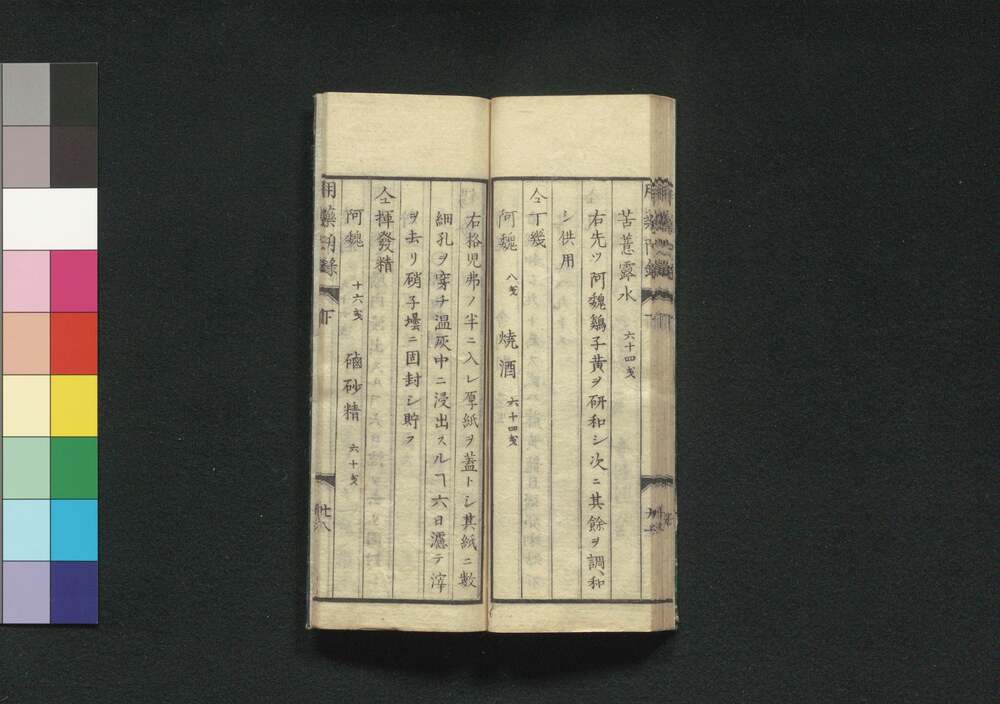 苦薏露水　六十四戔
右先ツ阿魏鷄子黄ヲ研和シ次ニ其餘ヲ調和
シ供用
仝丁幾
阿魏　八戔　焼酒　六十四戔
右格児弗ノ半ニ入レ厚紙ヲ蓋トシ其紙ニ數
細孔ヲ穿チ温灰中ニ浸出スルヿ六日濾テ滓
ヲ去リ硝子壜ニ固封シ貯フ
仝揮發精
阿魏　十六戔　磠砂精　六十戔
用藥須録　下